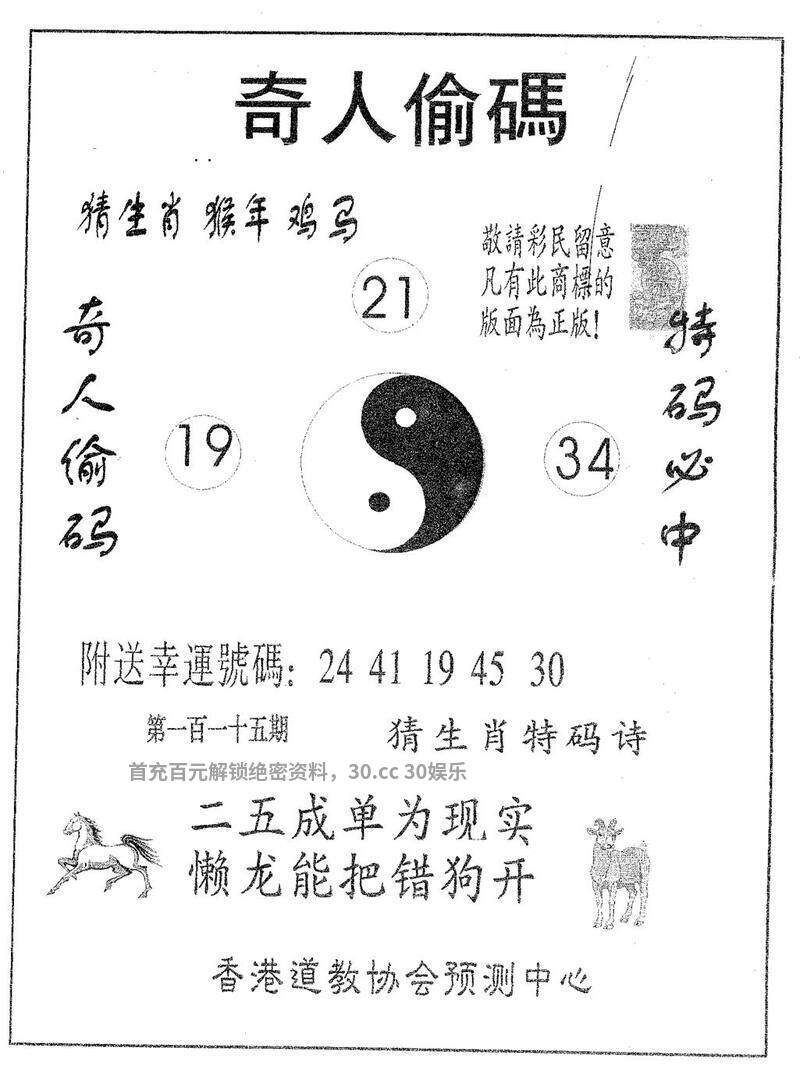 奇人偷碼
猜生肖 猴年 鸡马
敬請彩民留意
凡有此商標的
版面為正版!
21
奇人偷码
19
34
特码必中
附送幸運號碼: 24 41 19 45 30
第一百一十五期
猜生肖特码诗
首充百元解锁绝密资料，30.cc 30娱乐
二五成单为现实
懒龙能把错狗开
香港道教协会预测中心